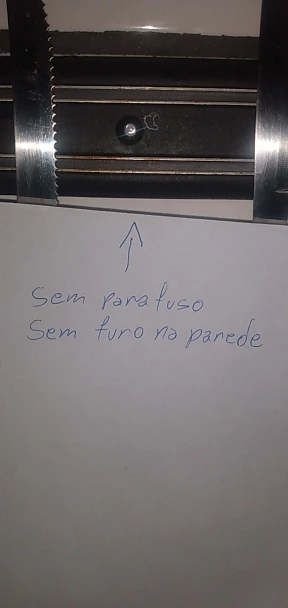 Sem parafuso
Sem furo na parede